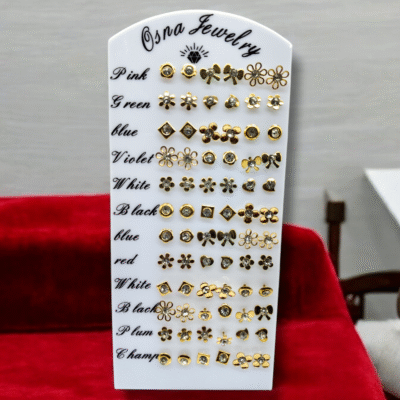 Osna Jewelry
Pink
Green
blue
Violet
White
Black
blue
red
White
Black
Plum
Champ